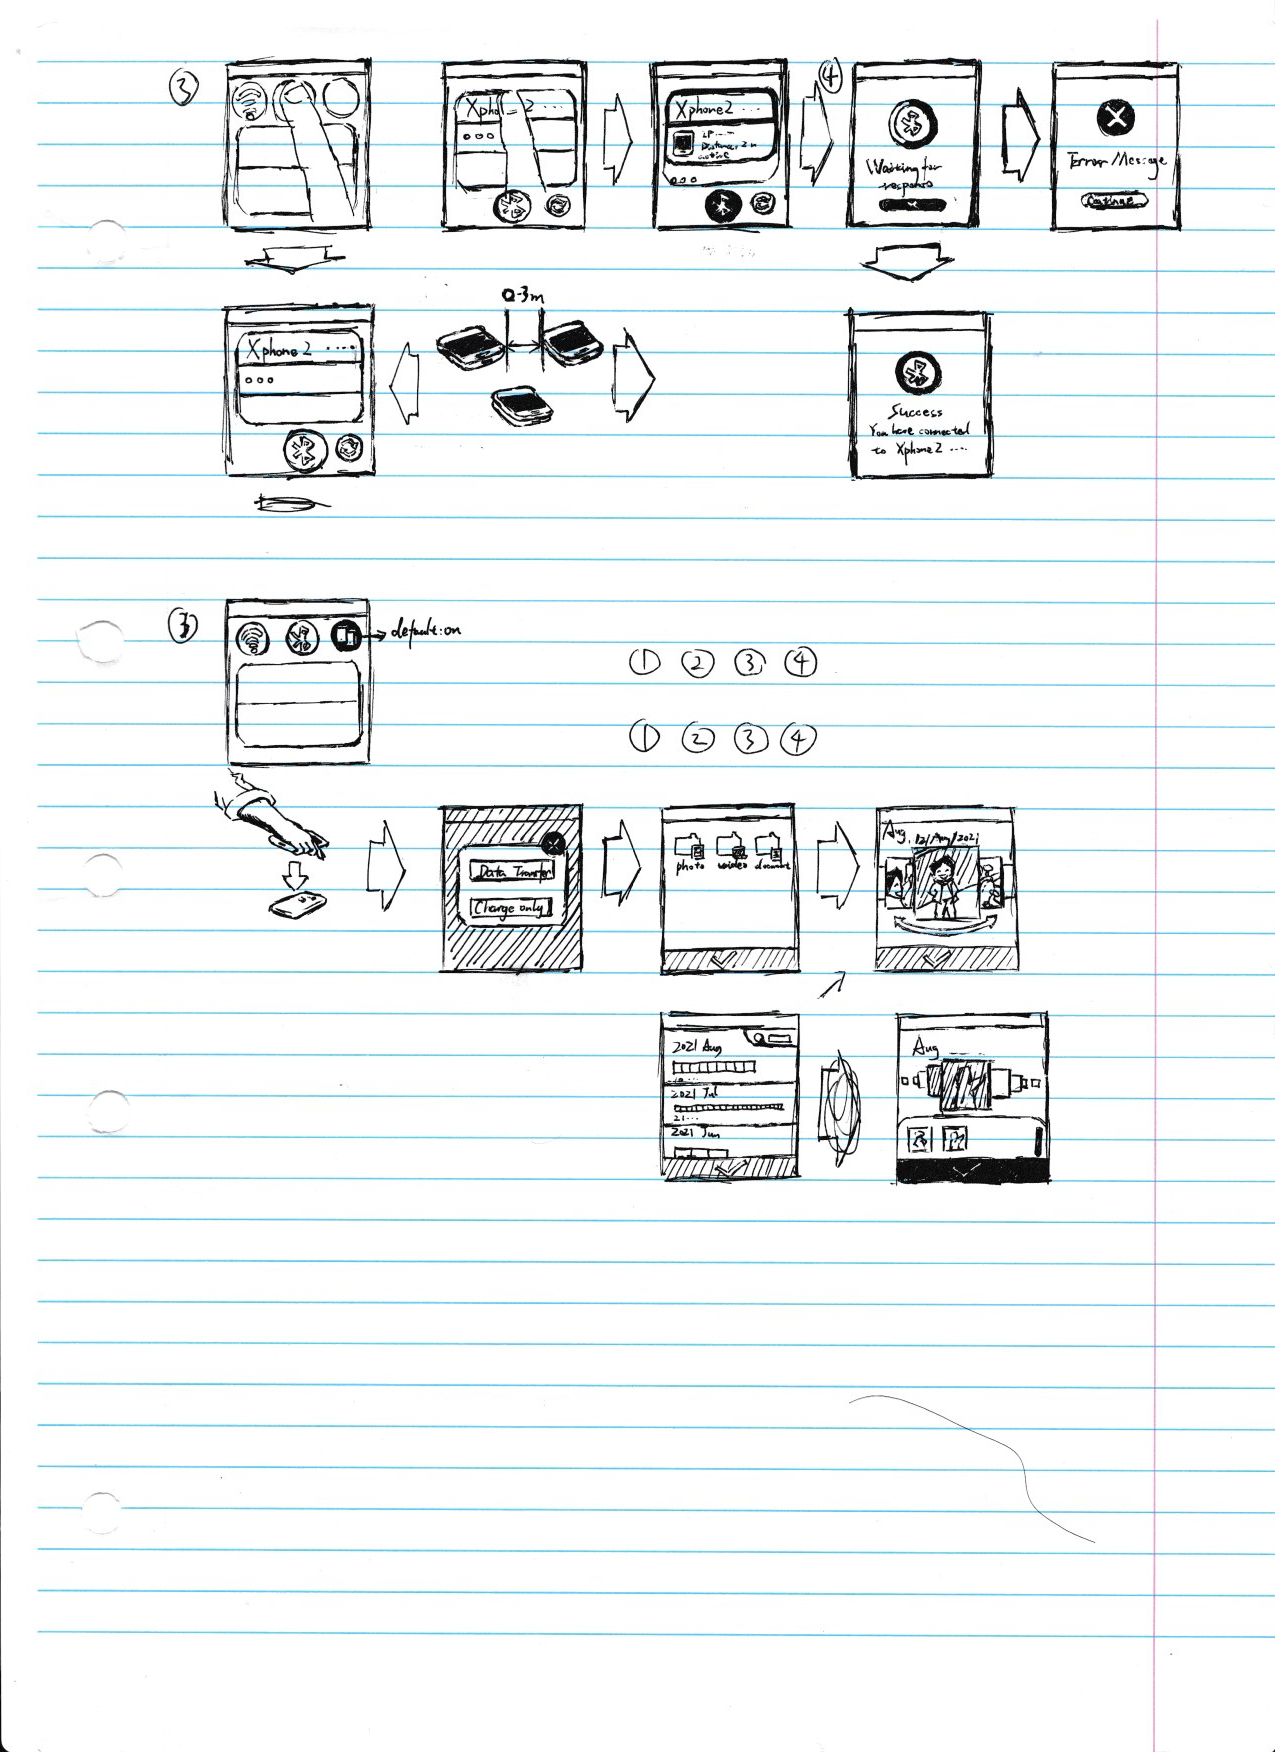 ③
Xpho 2 ...
Xphone2 ...
Distance: 2 m
④
Waiting for
response
Error Message
0-3m
Xphone2 ....
Success
You have connected
to Xphone2 ....
③
default:on
① ② ③ ④
① ② ③ ④
Data Transfer
Charge only
photo
document
Aug. 12/Aug/2021
2021 Aug
2021 Jul
21...
2021 Jun
Aug